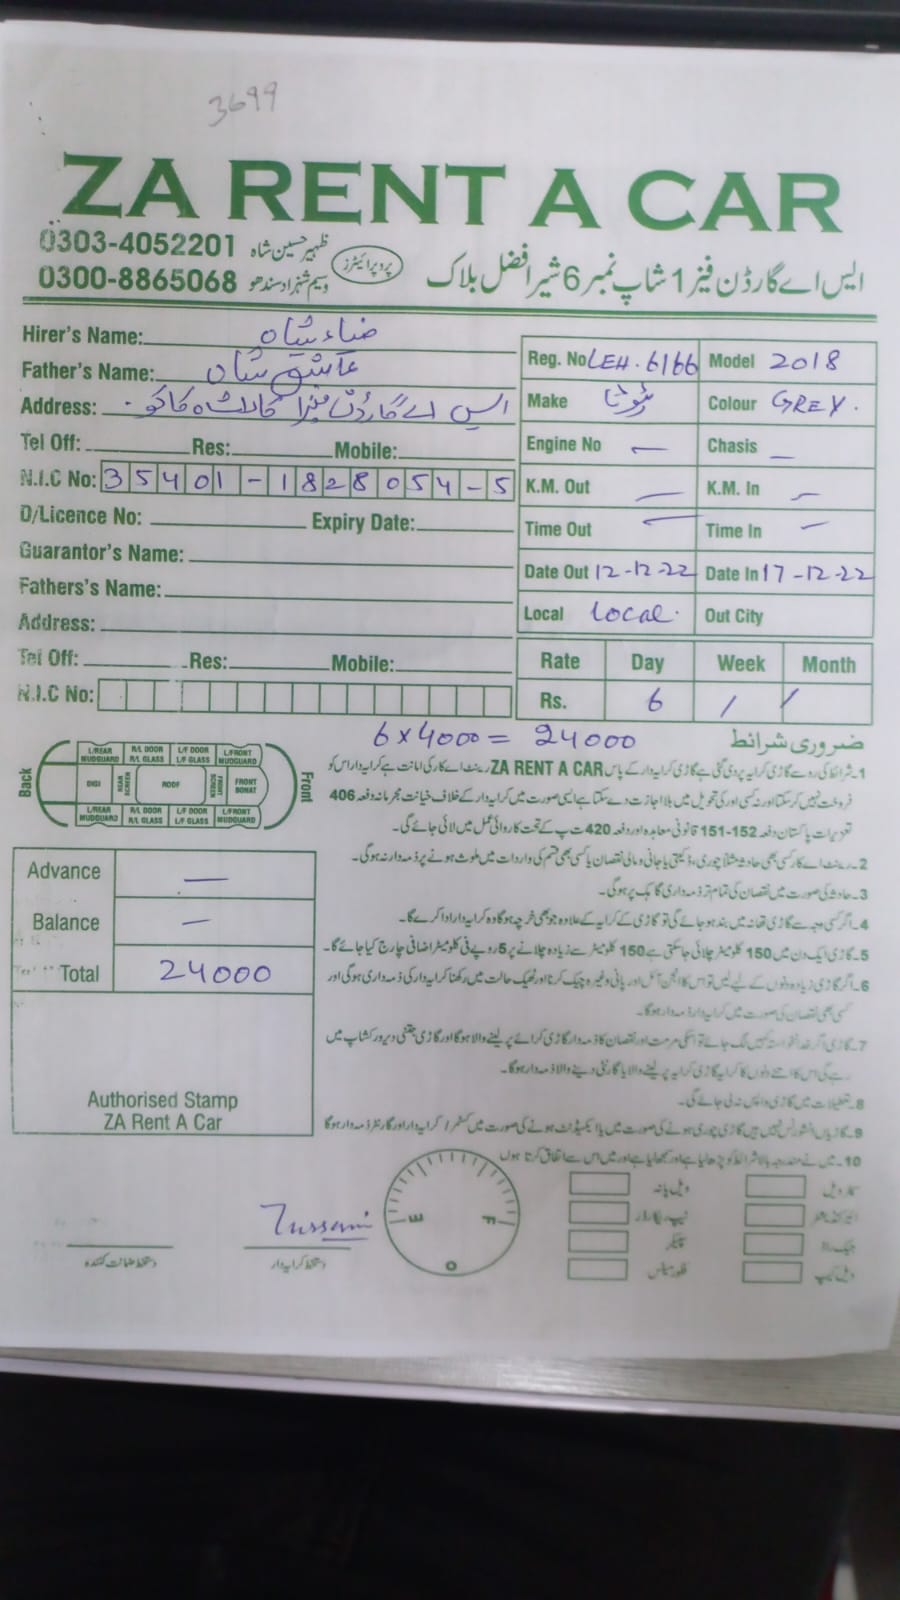 3699
ZA RENT A CAR
0303-4052201 ظہیر حسین شاہ
0300-8865068 وسیم شہزاد سندھو
پروپرائیٹرز
ایس اے گارڈن فیز 1 شاپ نمبر 6 شیر افضل بلاک
Hirer's Name: ضیاء شاہ
Father's Name: عاشق شاہ
Address: ایس اے گارڈن فیز 1 کالا شاہ کاکو
Tel Off: Res: Mobile:
N.I.C No: 35401-1828054-5
D/Licence No: Expiry Date:
Guarantor's Name:
Fathers's Name:
Address:
Tel Off: Res: Mobile:
N.I.C No:
Reg. No LEH.6166 Model 2018
Make Colour GREY.
Engine No — Chasis —
K.M. Out — K.M. In —
Time Out — Time In —
Date Out 12-12-22 Date In 17-12-22
Local Local. Out City
Rate Day Week Month
Rs. 6 / /
6 x 4000 = 24000
ضروری شرائط
Back
L/REAR MUDGUARD R/L DOOR R/L GLASS L/F DOOR L/F GLASS L/FRONT MUDGUARD
DIGI REAR SCREEN ROOF FRONT SCREEN FRONT BONAT
L/REAR MUDGUARD R/L DOOR R/L GLASS L/F DOOR L/F GLASS L/FRONT MUDGUARD
Front
1۔شرائط کی رو سے گاڑی کرایہ پر دی گئی ہے گاڑی کرایہ دار کے پاس ZA RENT A CAR رینٹ اے کار کی امانت ہے کرایہ دار اس کو
فروخت نہیں کر سکتا اور نہ کسی اور کی تحویل میں بلا اجازت دے سکتا ہے ایسی صورت میں کرایہ دار کے خلاف خیانت مجرمانہ دفعہ 406
تعزیرات پاکستان دفعہ 152-151 قانونی معاہدہ اور دفعہ 420 ت پ کے تحت کاروائی عمل میں لائی جائے گی۔
2۔رینٹ اے کار کسی بھی حادثہ مثلاً چوری، ڈکیتی یا جانی و مالی نقصان یا کسی بھی قسم کی واردات میں ملوث ہونے پر ذمہ دار نہ ہو گی۔
3۔حادثہ کی صورت میں نقصان کی تمام تر ذمہ داری گاہک پر ہو گی۔
4۔اگر کسی وجہ سے گاڑی تھانہ میں بند ہو جائے گی تو گاڑی کے کرایہ کے علاوہ جو بھی خرچہ ہو گا وہ کرایہ دار ادا کرے گا۔
5۔گاڑی ایک دن میں 150 کلومیٹر چلائی جا سکتی ہے 150 کلومیٹر سے زیادہ چلانے پر 5 روپے فی کلومیٹر اضافی چارج کیا جائے گا۔
6۔اگر گاڑی زیادہ دنوں کے لیے لیں تو اس کا انجن آئل اور پانی وغیرہ چیک کرنا اور ٹھیک حالت میں رکھنا کرایہ دار کی ذمہ داری ہو گی اور
کسی بھی نقصان کی صورت میں کرایہ دار ذمہ دار ہو گا۔
7۔گاڑی اگر خدانخواستہ کہیں لگ جائے تو اسکی مرمت اور نقصان کا ذمہ دار گاڑی کرائے پر لینے والا ہو گا اور گاڑی جتنی دیر ورکشاپ میں
رہے گی اس کا اتنے دنوں کا کرایہ گاڑی کرایہ پر لینے والا یا گارنٹی دینے والا ذمہ دار ہو گا۔
8۔تعطیلات میں گاڑی واپس نہ لی جائے گی۔
9۔گاڑیاں انشورنس نہیں ہیں گاڑی چوری ہونے کی صورت میں یا ایکسیڈنٹ ہونے کی صورت میں کسٹمر / کرایہ دار اور گارنٹر ذمہ دار ہو گا
10۔میں نے مندرجہ بالا شرائط کو پڑھ لیا ہے اور سمجھ لیا ہے اور میں اس سے اتفاق کرتا ہوں
Advance —
Balance —
Total 24000
Authorised Stamp
ZA Rent A Car
E F O
وہیل پانہ
ٹیپ ریکارڈر ایئر کنڈیشنر
سپیکر جیک راڈ
فلور میٹس وہیل کیپ
دستخط کرایہ دار
دستخط ضمانت کنندہ